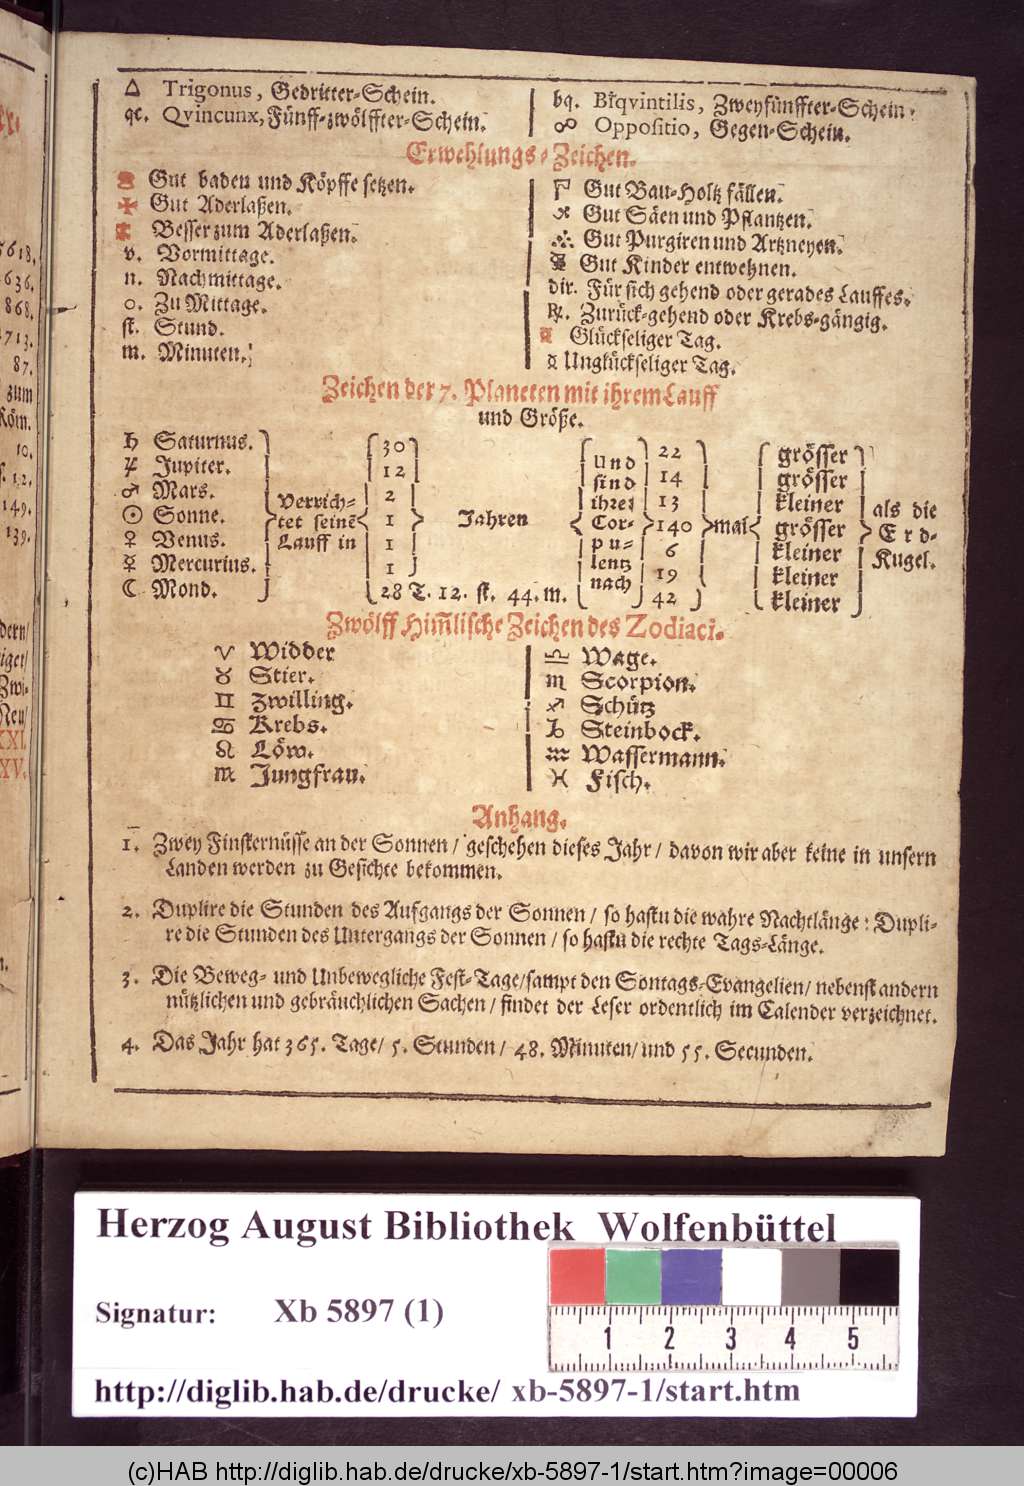 △ Trigonus, Gedritter-Schein.
qc. Qvincunx, Fünff-zwölffter-Schein.
bq. Biqvintilis, Zweyfünffter-Schein.
☍ Oppositio, Gegen-Schein.
Erwehlungs-Zeichen.
Gut baden und Köpffe setzen.
Gut Aderlaßen.
Besser zum Aderlaßen.
v. Vormittage.
n. Nachmittage.
o. Zu Mittage.
st. Stund.
m. Minuten.
Gut Bau-Holtz fällen.
Gut Säen und Pflantzen.
Gut Purgiren und Artzneyen.
Gut Kinder entwehnen.
dir. Für sich gehend oder gerades Lauffes.
℞. Zurück-gehend oder Krebs-gängig.
Glückseliger Tag.
Unglückseliger Tag.
Zeichen der 7. Planeten mit ihrem Lauff
und Größe.
♄ Saturnus. 30 22 grösser
♃ Jupiter. 12 und 14 grösser
♂ Mars. verrich- 2 sind ihrer 13 kleiner als die
☉ Sonne. tet seinē 1 Jahren Cor- 140 mal grösser Erd-
♀ Venus. Lauff in 1 pu- 6 kleiner Kugel.
☿ Mercurius. 1 lentz 19 kleiner
☾ Mond. 28 T. 12. st. 44. m. nach 42 kleiner
Zwölff Him̄lische Zeichen des Zodiaci.
♈ Widder
♉ Stier.
♊ Zwilling.
♋ Krebs.
♌ Löw.
♍ Jungfrau.
♎ Wage.
♏ Scorpion.
♐ Schütz
♑ Steinbock.
♒ Wassermann.
♓ Fisch.
Anhang.
1. Zwey Finsternüsse an der Sonnen / geschehen dieses Jahr / davon wir aber keine in unsern
Landen werden zu Gesichte bekommen.
2. Duplire die Stunden des Aufgangs der Sonnen / so hastu die wahre Nachtlänge: Dupli-
re die Stunden des Untergangs der Sonnen / so hastu die rechte Tags-Länge.
3. Die Beweg- und Unbewegliche Fest-Tage/ sampt den Sontags-Evangelien/ nebenst andern
nützlichen und gebräuchlichen Sachen / findet der Leser ordentlich im Calender verzeichnet.
4. Das Jahr hat 365. Tage/ 5. Stunden / 48. Minuten/ und 55. Secunden.
5618.
636.
868.
1713.
87.
zum
Röm.
10.
12.
149.
139.
dern/
Zwi-
Neu/
XXI.
XV.
Herzog August Bibliothek Wolfenbüttel
Signatur: Xb 5897 (1)
1 2 3 4 5
http://diglib.hab.de/drucke/ xb-5897-1/start.htm
(c)HAB http://diglib.hab.de/drucke/xb-5897-1/start.htm?image=00006